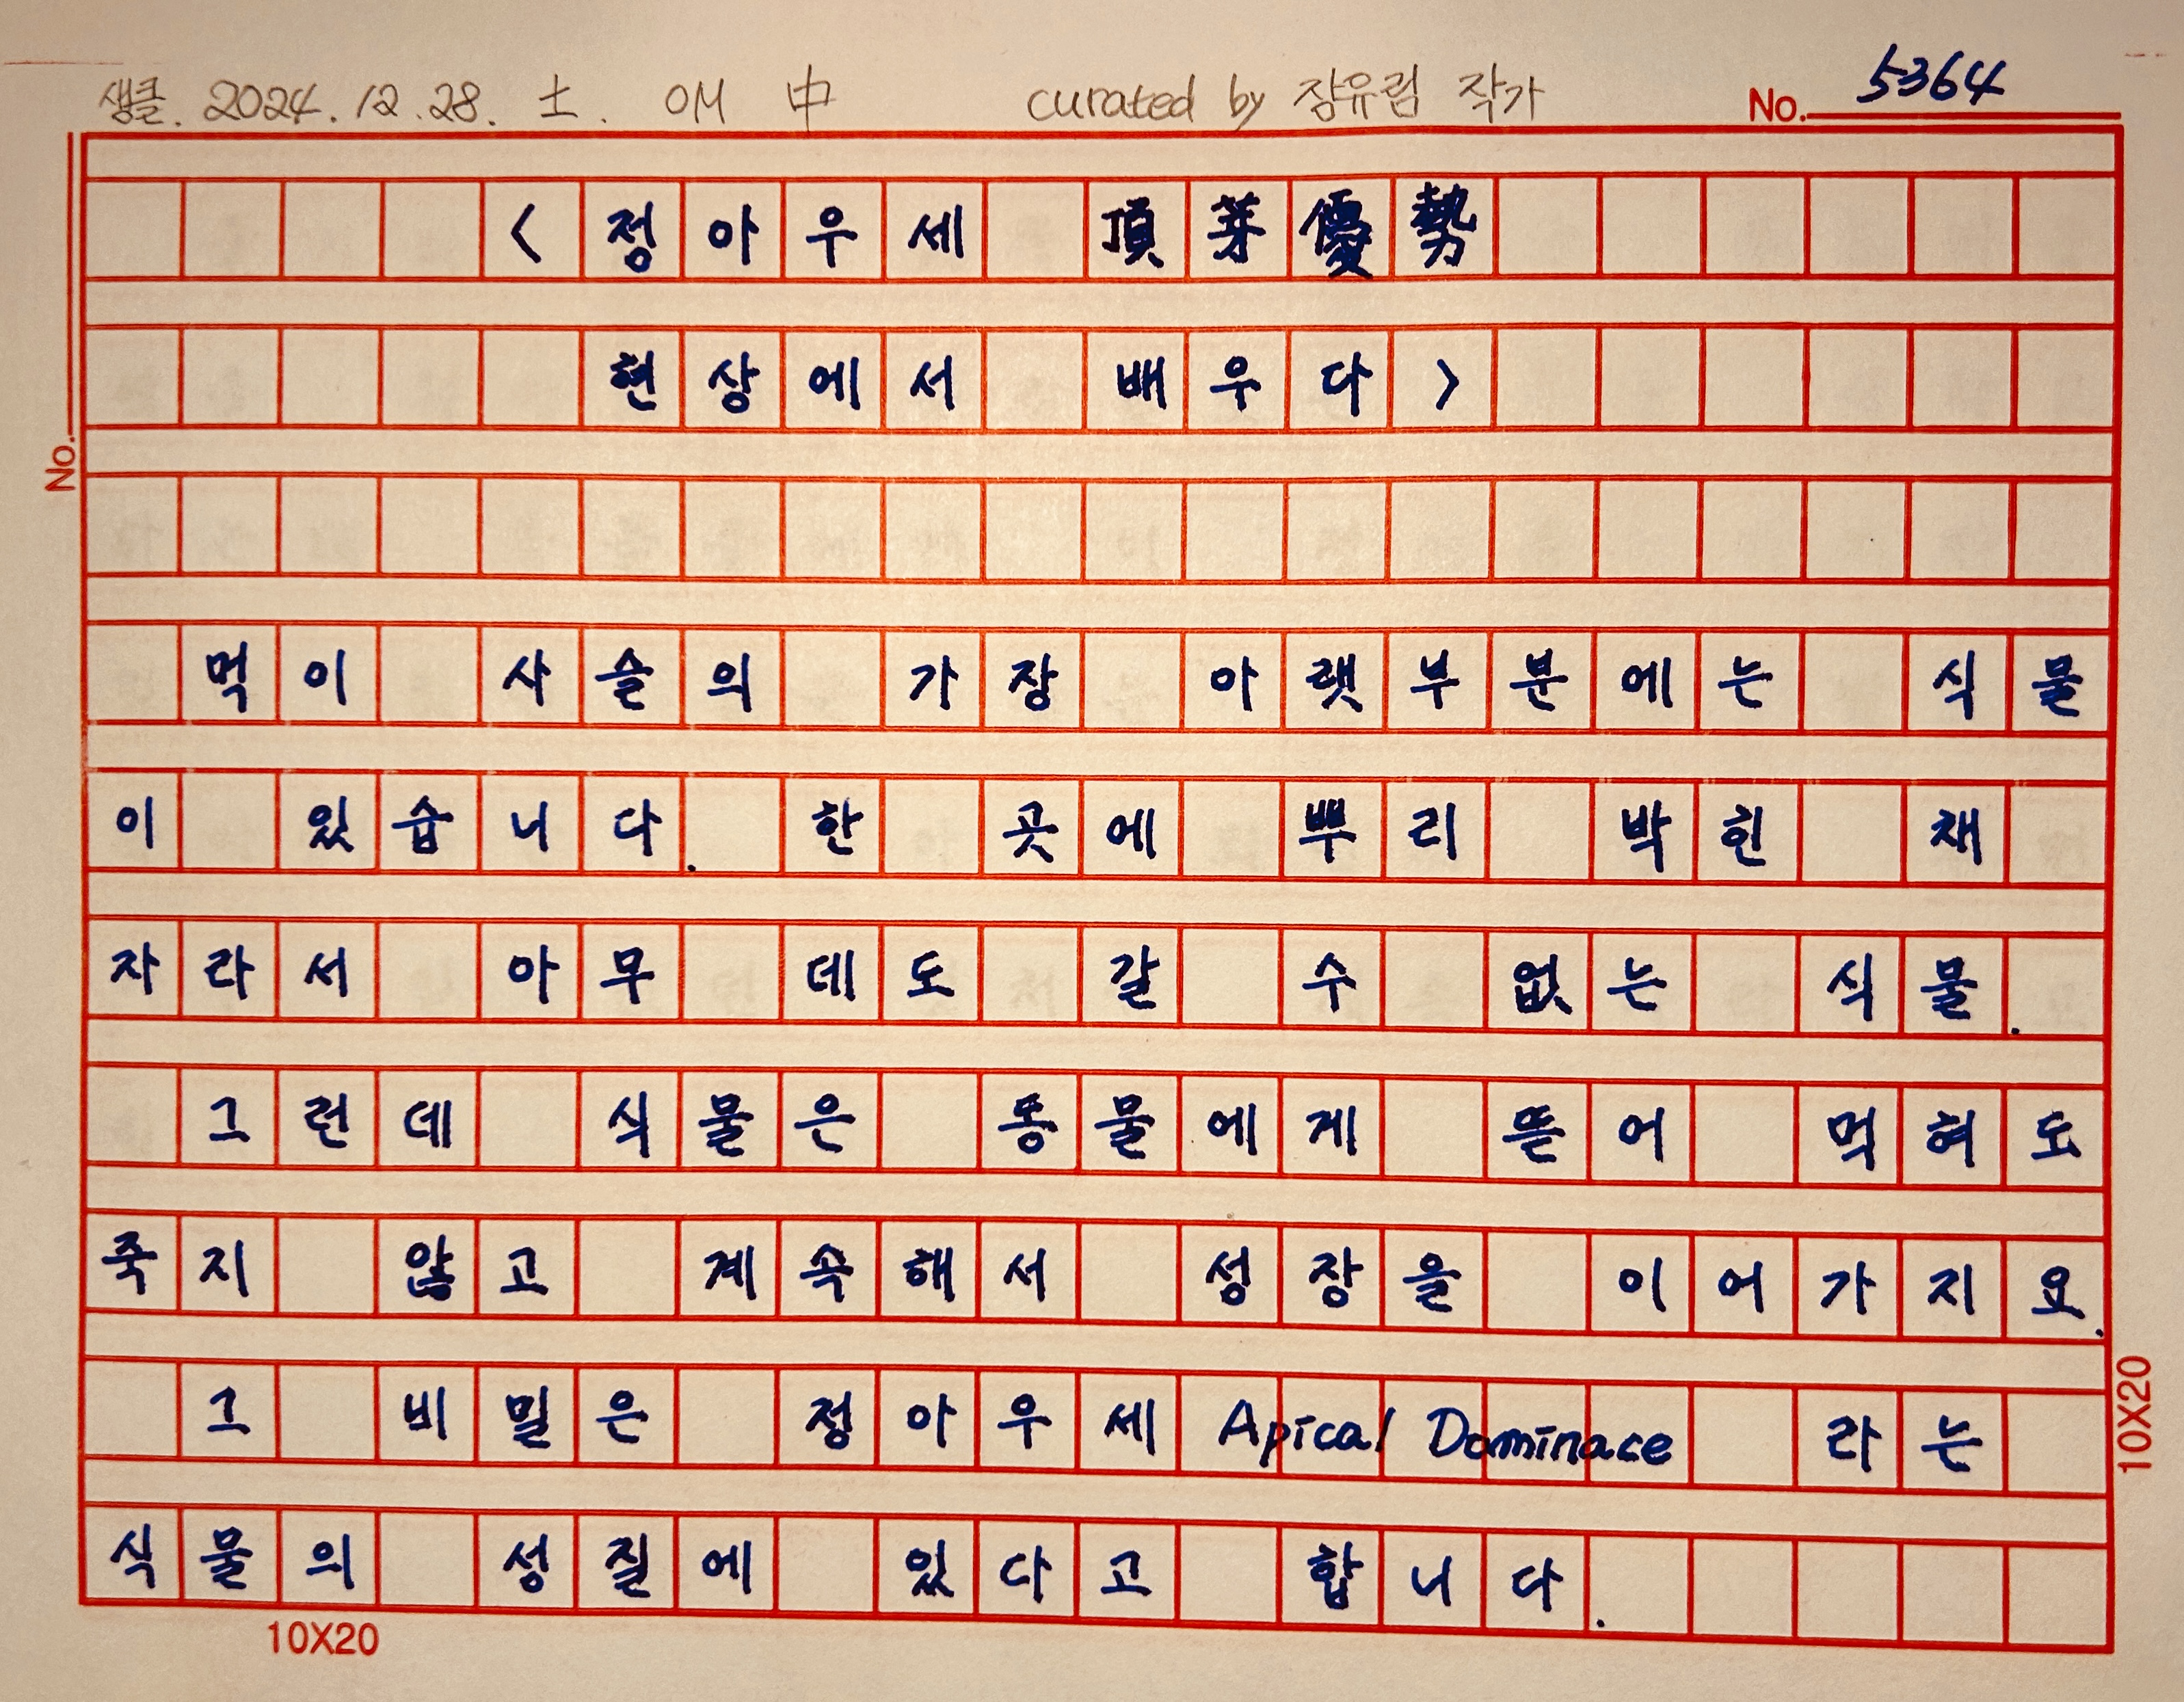 샘클. 2024.12.28. 土. OM 中 curated by 장유림 작가 No. 5364
<정아우세 頂芽優勢
현상에서 배우다>
No.
먹이 사슬의 가장 아랫부분에는 식물
이 있습니다. 한 곳에 뿌리 박힌 채
자라서 아무 데도 갈 수 없는 식물.
그런데 식물은 동물에게 뜯어 먹혀도
죽지 않고 계속해서 성장을 이어가지요.
그 비밀은 정아우세 Apical Dominace 라는
식물의 성질에 있다고 합니다.
10X20
10X20